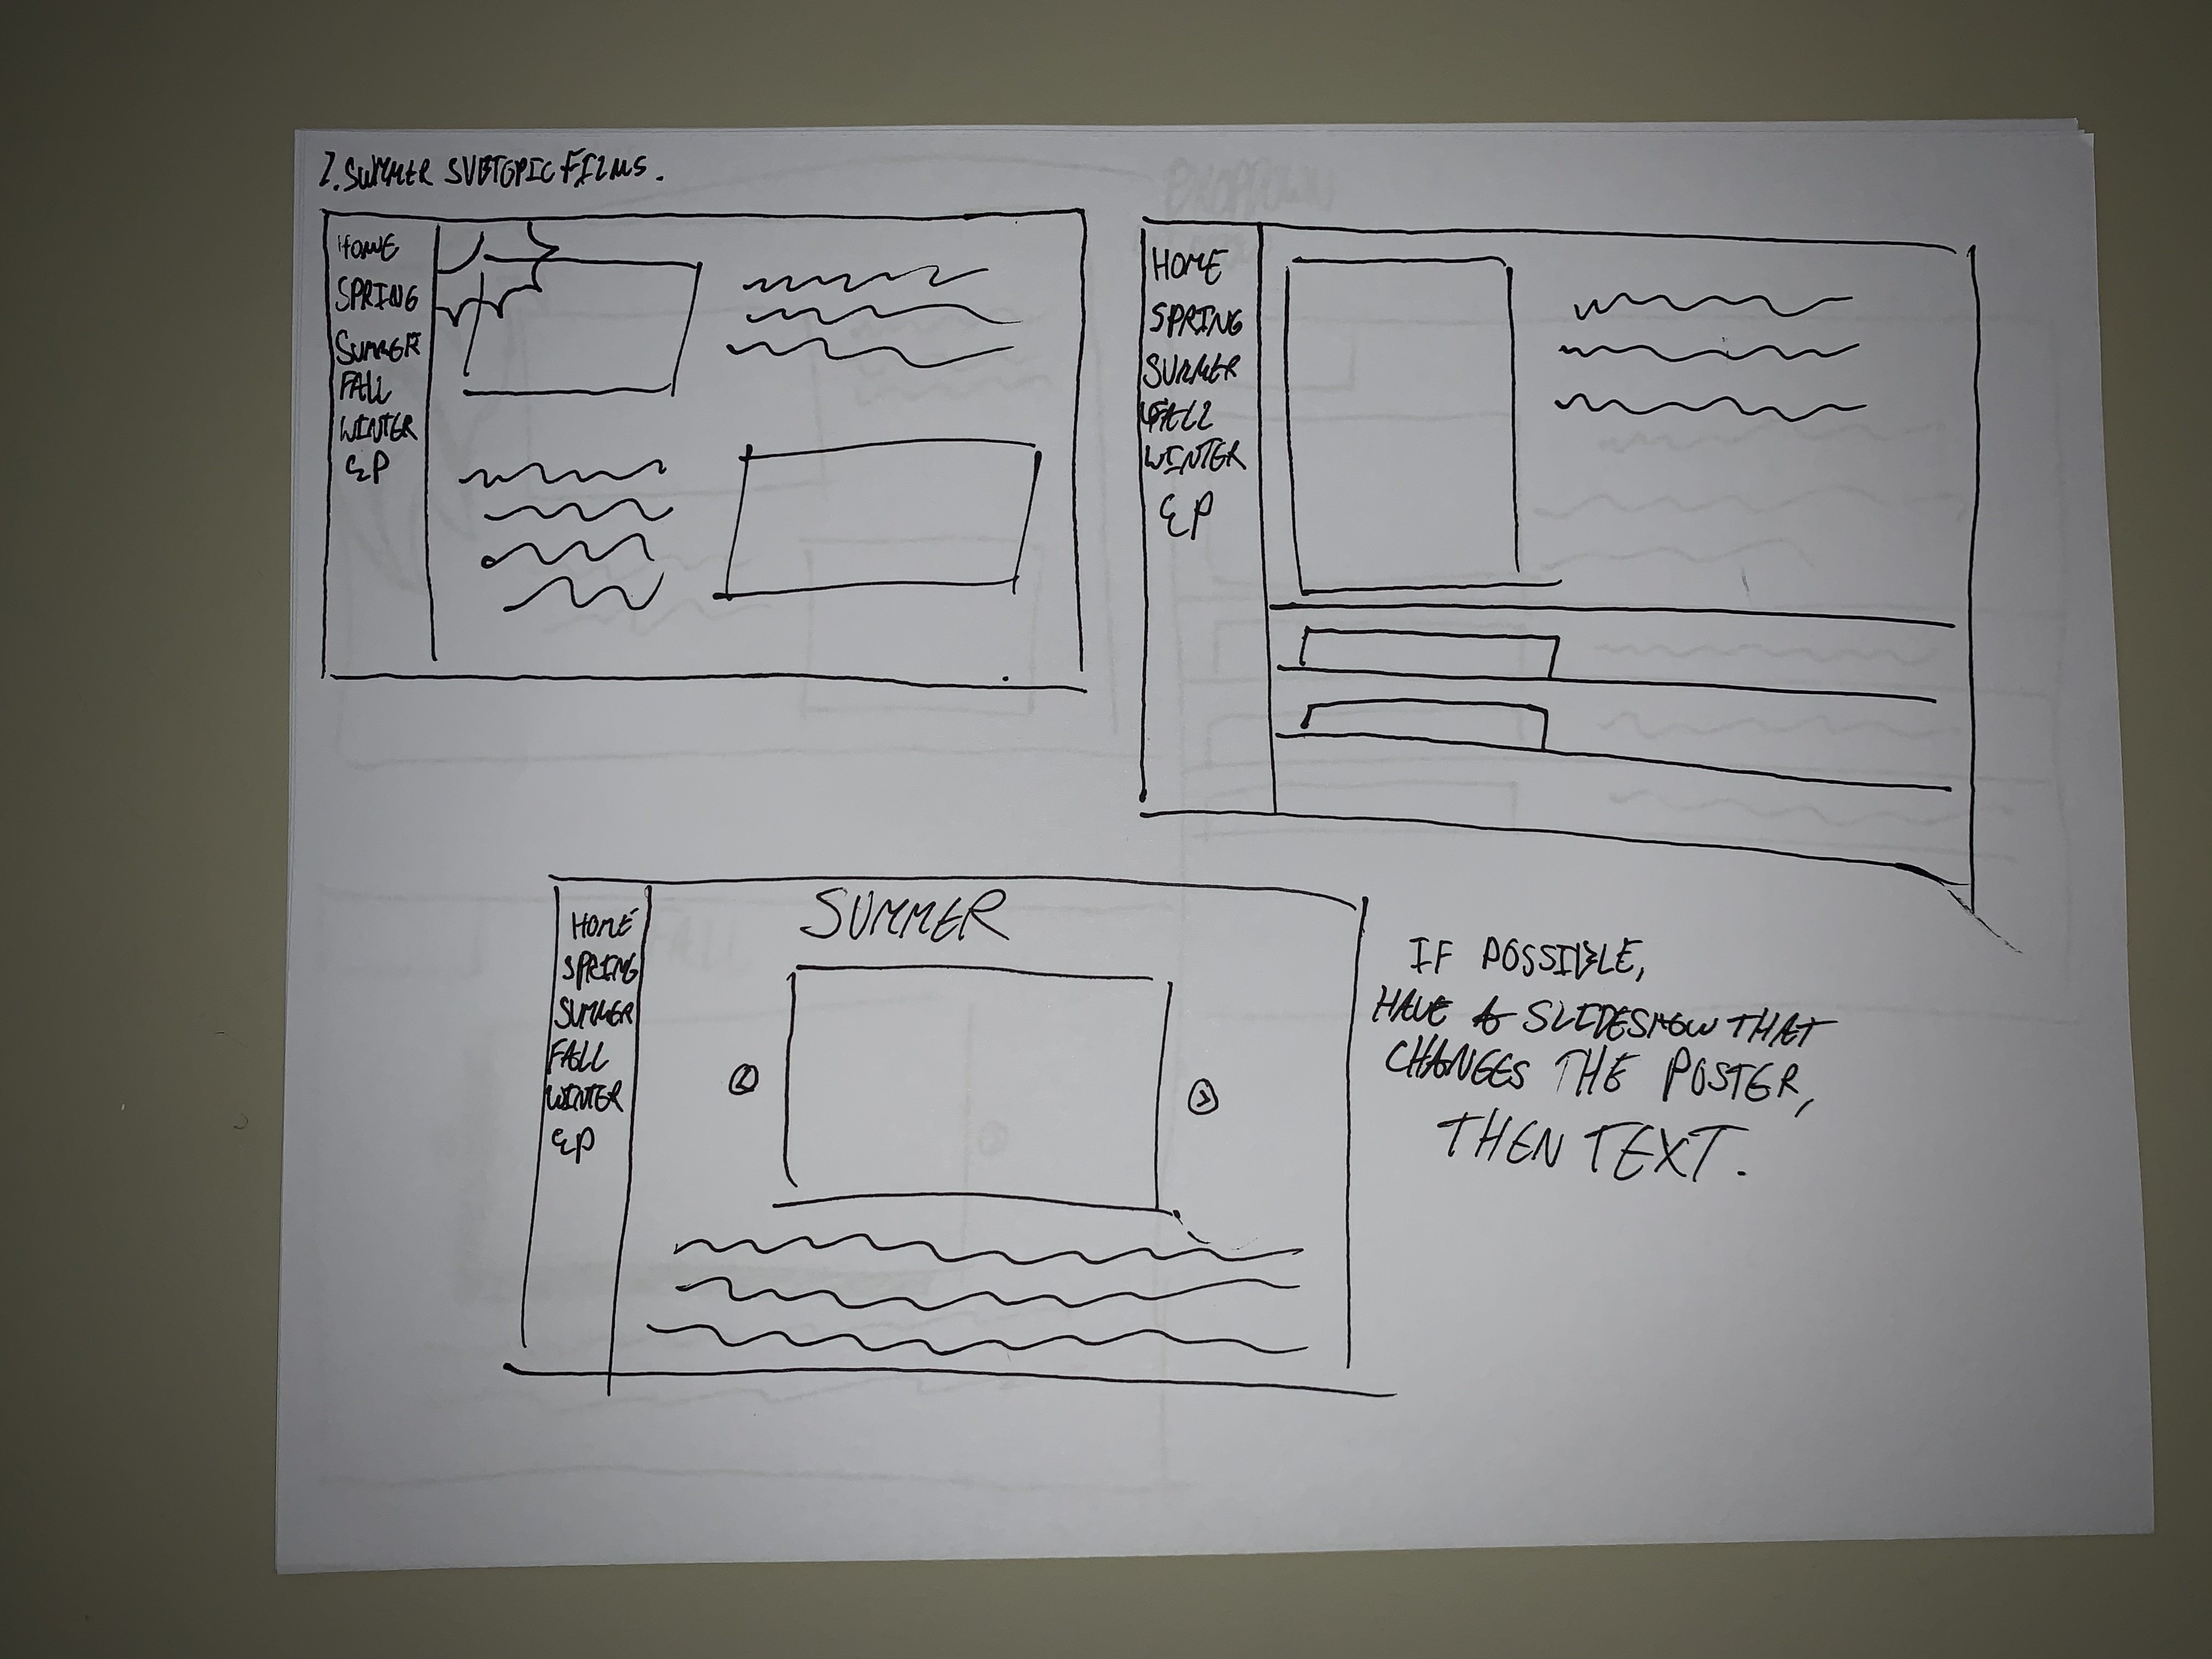 2. SUMMER SUBTOPIC FILMS.
HOME
SPRING
SUMMER
FALL
WINTER
&P
HOME
SPRING
SUMMER
FALL
WINTER
&P
SUMMER
HOME
SPRING
SUMMER
FALL
WINTER
&P
IF POSSIBLE,
HAVE A SLIDESHOW THAT
CHANGES THE POSTER,
THEN TEXT.